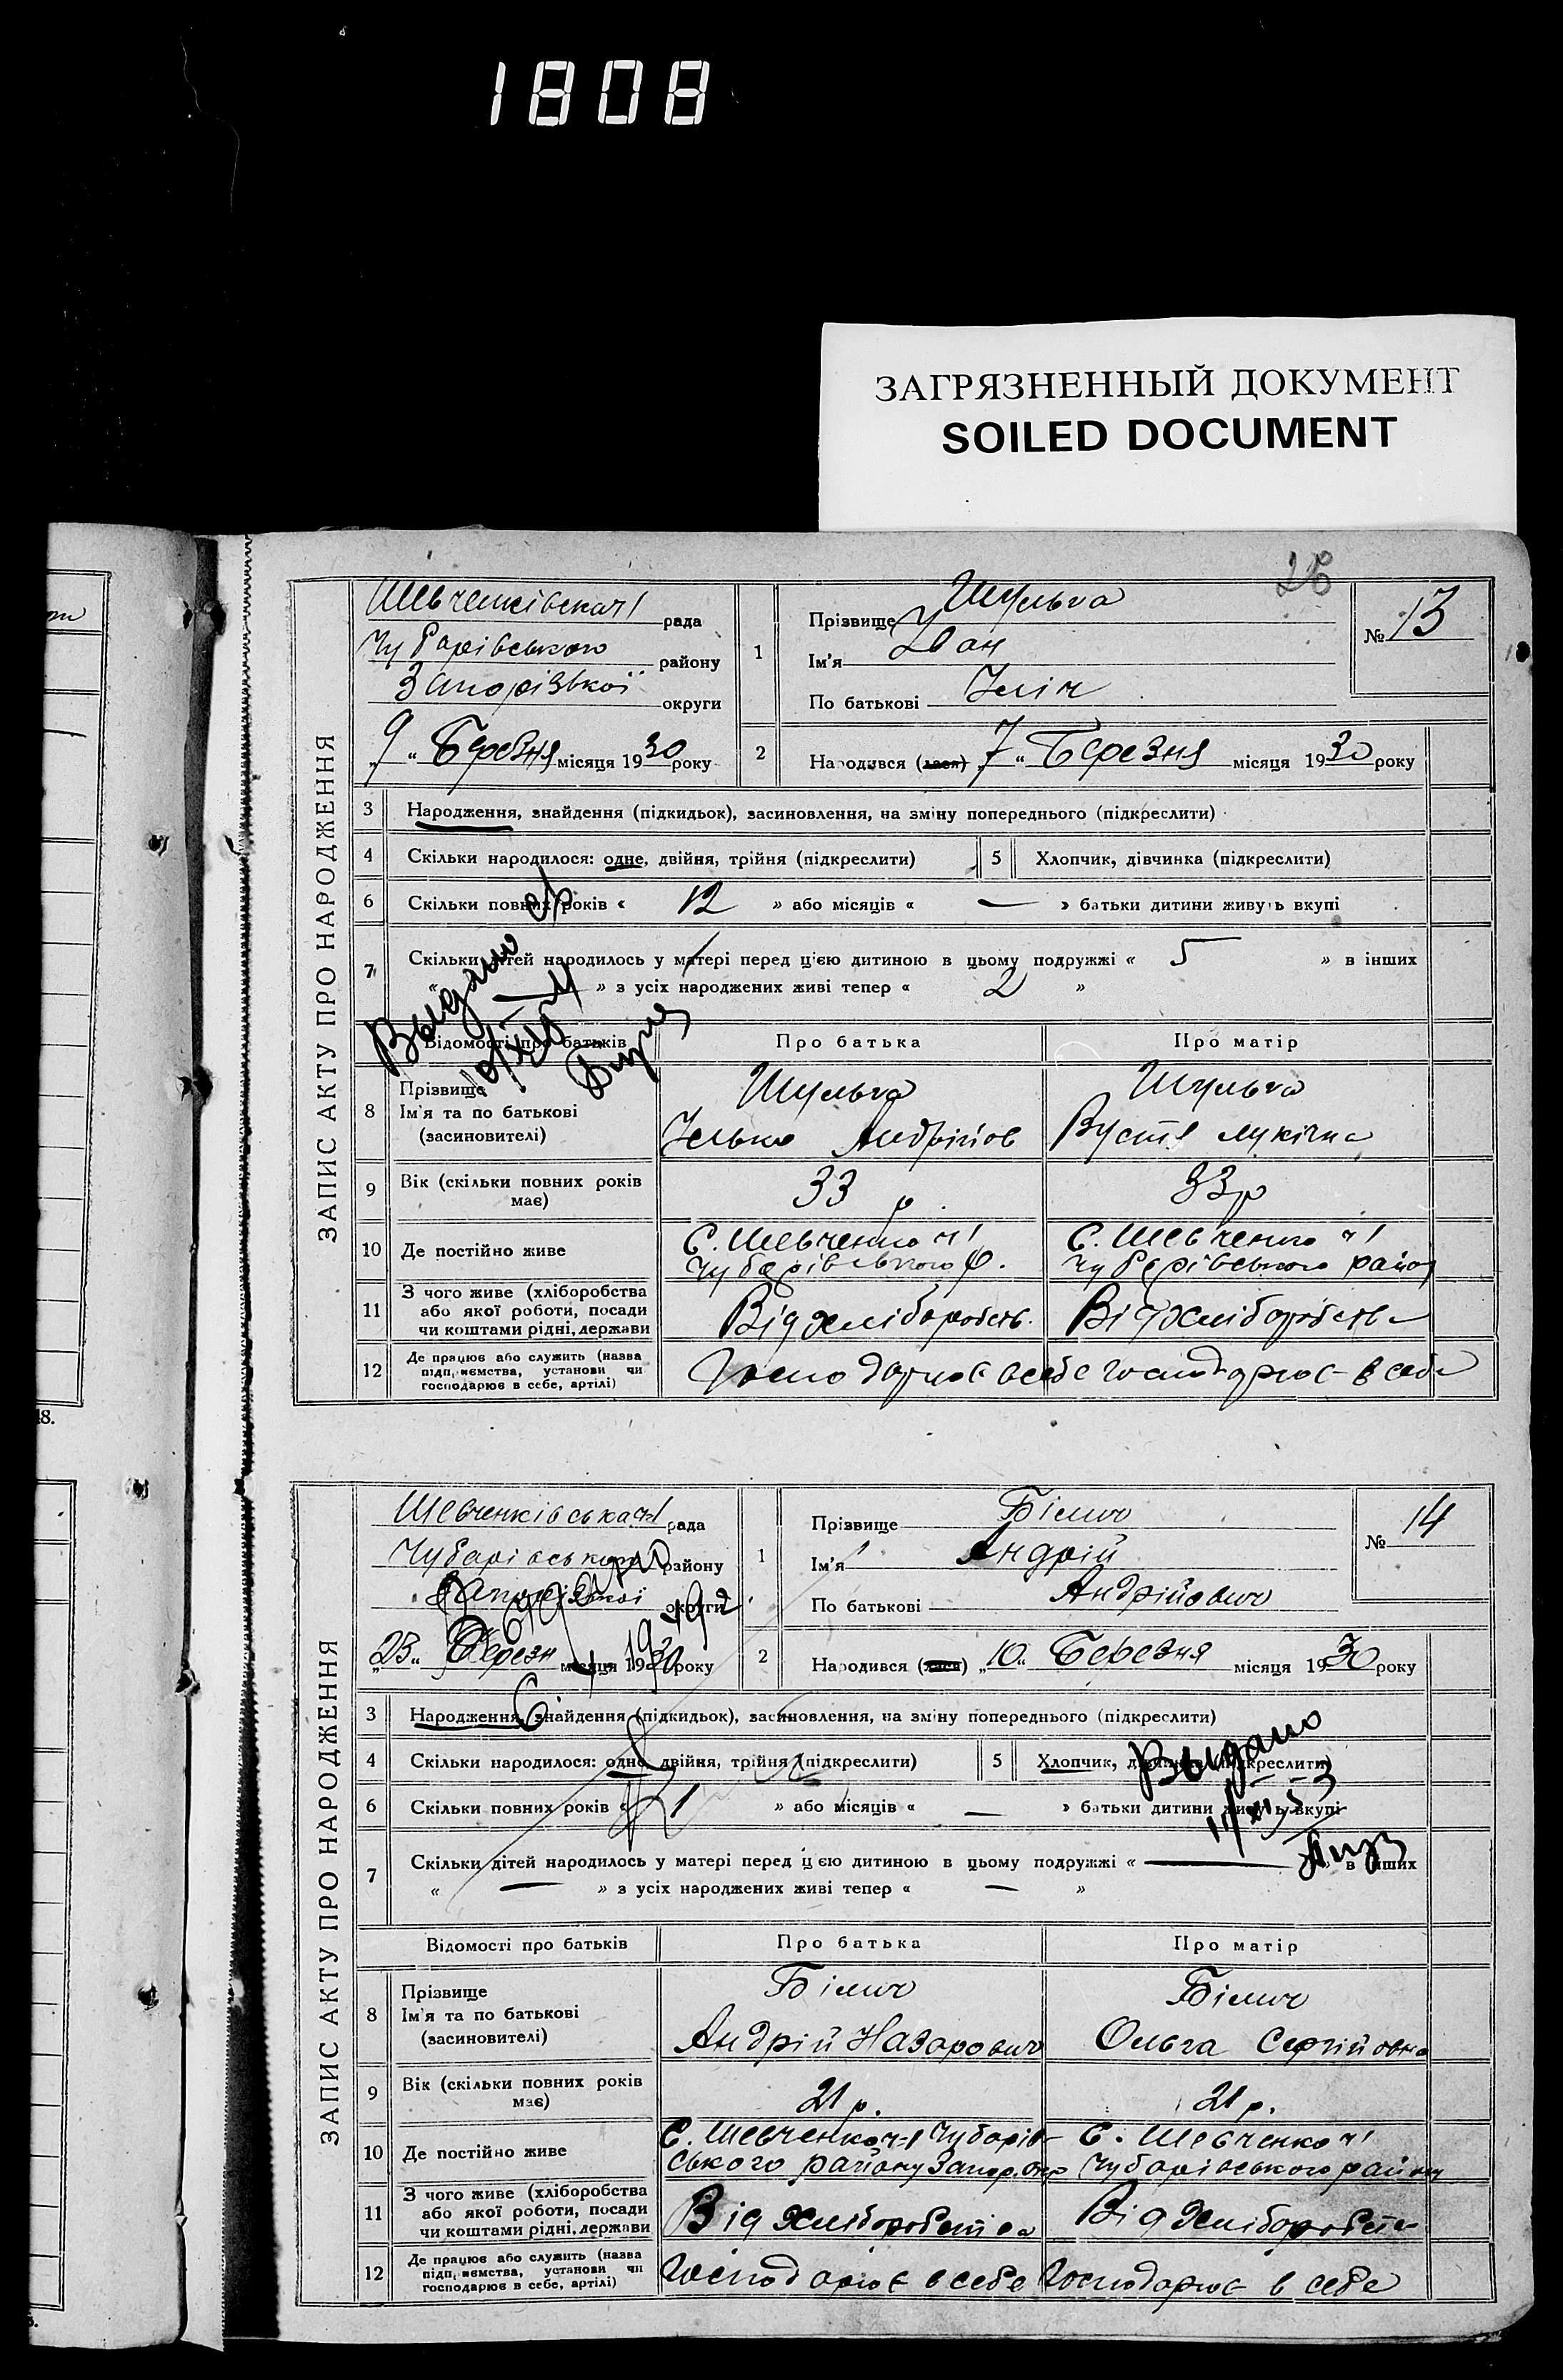 1808
ЗАГРЯЗНЕННЫЙ ДОКУМЕНТ
SOILED DOCUMENT
26
ЗАПИС АКТУ ПРО НАРОДЖЕННЯ
Шевченківська ч1 рада
Чубарівського району
Запорізької округи
„9“ Березня місяця 1930 року
1
Прізвище Шульга
Ім'я Іван
По батькові Ілліч
№ 13
2 Народився (лася) „7“ Березня місяця 1930 року
3 Народження, знайдення (підкидьок), засиновлення, на зміну попереднього (підкреслити)
4 Скільки народилося: одне, двійня, трійня (підкреслити) 5 Хлопчик, дівчинка (підкреслити)
6 Скільки повних років « 12 » або місяців « — » батьки дитини живуть вкупі
7 Скільки дітей народилось у матері перед цією дитиною в цьому подружжі « 5 » в інших
« — » з усіх народжених живі тепер « 2 »
Выдано
Відомості про батьків Про батька Про матір
8 Прізвище
Ім'я та по батькові
(засиновителі)
Шульга
Ілько Андрійов
Шульга
Вустя Лукічна
9 Вік (скільки повних років має) 33 р. 33 р
10 Де постійно живе
С. Шевченко ч1
Чубарівського р.
С. Шевченко ч1
Чубарівського район
11 З чого живе (хліборобства
або якої роботи, посади
чи коштами рідні, держави
Від хліборобств. Від хліборобства
12 Де працює або служить (назва
підприємства, установи чи
господарює в себе, артілі)
Господарює в себе господарює в себе
ЗАПИС АКТУ ПРО НАРОДЖЕННЯ
Шевченківська ч1 рада
Чубарівського району
Запорізької округи
„23“ Березн місяця 1930 року
1
Прізвище Білич
Ім'я Андрій
По батькові Андрійович
№ 14
2 Народився (лася) „10“ Березня місяця 1930 року
3 Народження, знайдення (підкидьок), засиновлення, на зміну попереднього (підкреслити)
4 Скільки народилося: одне, двійня, трійня (підкреслити) 5 Хлопчик, дівчинка (підкреслити)
6 Скільки повних років « 1 » або місяців « — » батьки дитини живуть вкупі
Выдано
11/XI-53
7 Скільки дітей народилось у матері перед цією дитиною в цьому подружжі « — » в інших
« — » з усіх народжених живі тепер « — »
Відомості про батьків Про батька Про матір
8 Прізвище
Ім'я та по батькові
(засиновителі)
Білич
Андрій Назарович
Білич
Ольга Сергійовна
9 Вік (скільки повних років має) 21 р. 21 р.
10 Де постійно живе
С. Шевченко ч-1 Чубарів-
ського району Запор. окр
С. Шевченко ч1
Чубарівського району
11 З чого живе (хліборобства
або якої роботи, посади
чи коштами рідні, держави
Від хліборобства Від хліборобств
12 Де працює або служить (назва
підприємства, установи чи
господарює в себе, артілі)
Господарює в себе Господарює в себе